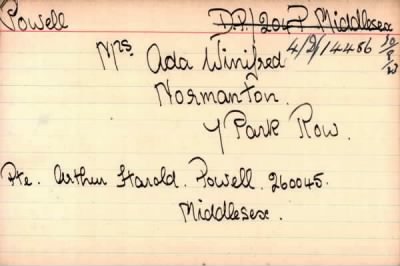 Powell D.P./204P Middlesex
Mrs Ada Winifred 4/2/14486
Normanton.
7 Park Row.
Pte. Arthur Harold. Powell. 260045.
Middlesex.